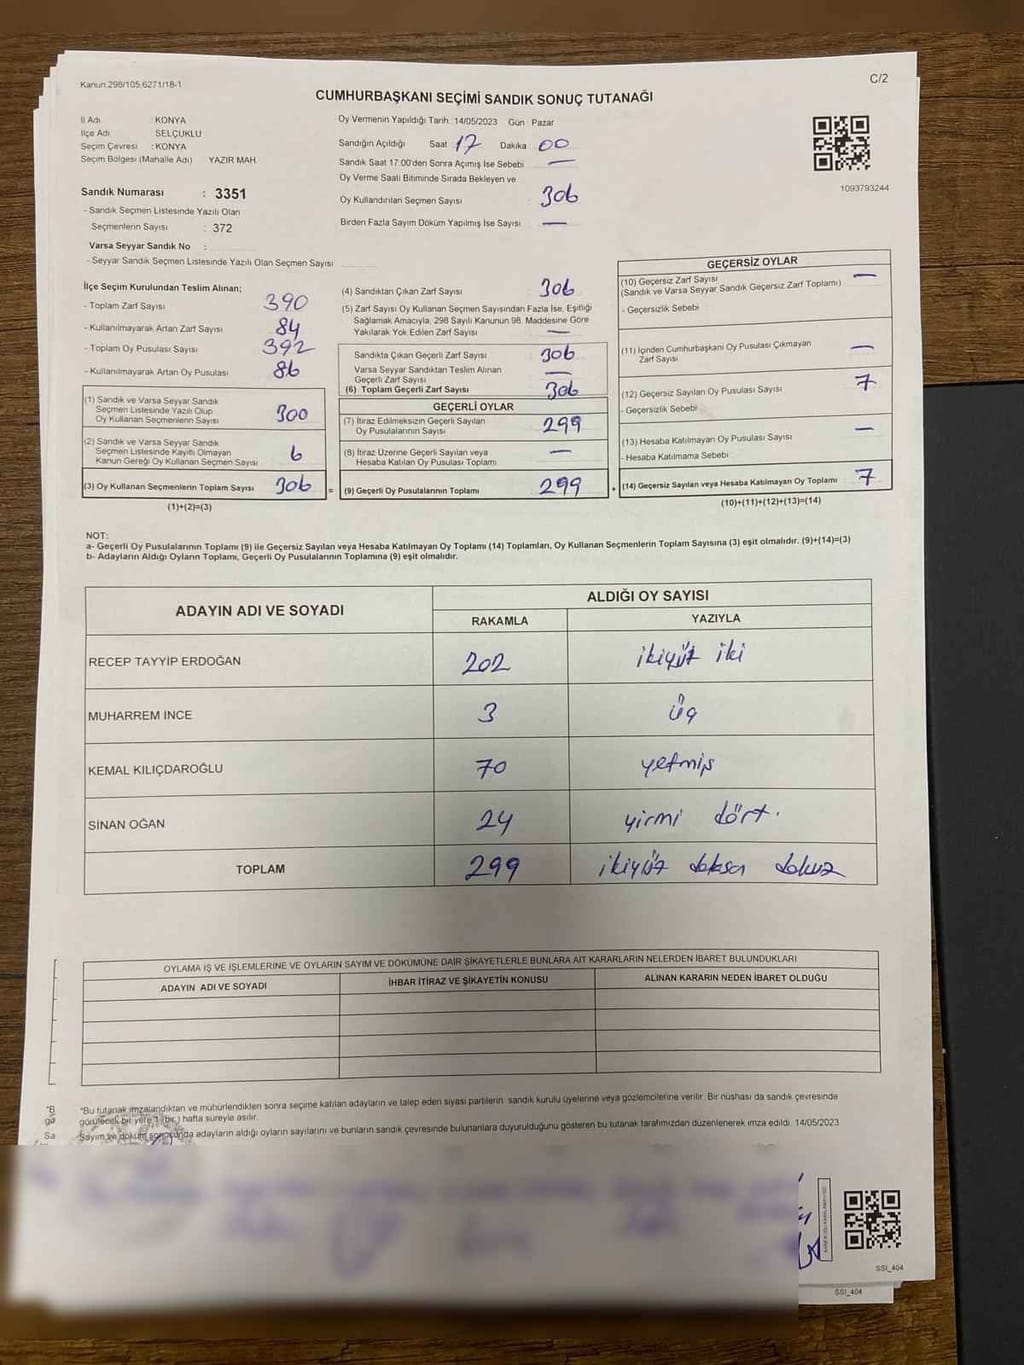 Kanun.298/105.6271/18-1
C/2
CUMHURBAŞKANI SEÇİMİ SANDIK SONUÇ TUTANAĞI
İl Adı KONYA
İlçe Adı SELÇUKLU
Seçim Çevresi : KONYA
Seçim Bölgesi (Mahalle Adı) YAZIR MAH.
Sandık Numarası : 3351
- Sandık Seçmen Listesinde Yazılı Olan
Seçmenlerin Sayısı : 372
Varsa Seyyar Sandık No :
- Seyyar Sandık Seçmen Listesinde Yazılı Olan Seçmen Sayısı
Oy Vermenin Yapıldığı Tarih : 14/05/2023 Gün : Pazar
Sandığın Açıldığı Saat 17 Dakika 00
Sandık Saat 17.00'den Sonra Açımış İse Sebebi —
Oy Verme Saati Bitiminde Sırada Bekleyen ve
Oy Kullandırılan Seçmen Sayısı 306
Birden Fazla Sayım Döküm Yapılmış İse Sayısı —
1093793244
İlçe Seçim Kurulundan Teslim Alınan;
- Toplam Zarf Sayısı 390
- Kullanılmayarak Artan Zarf Sayısı 84
- Toplam Oy Pusulası Sayısı 392
- Kullanılmayarak Artan Oy Pusulası 86
(1) Sandık ve Varsa Seyyar Sandık
Seçmen Listesinde Yazılı Olup
Oy Kullanan Seçmenlerin Sayısı 300
(2) Sandık ve Varsa Seyyar Sandık
Seçmen Listesinde Kayıtlı Olmayan
Kanun Gereği Oy Kullanan Seçmen Sayısı 6
(3) Oy Kullanan Seçmenlerin Toplam Sayısı 306
(1)+(2)=(3)
(4) Sandıktan Çıkan Zarf Sayısı 306
(5) Zarf Sayısı Oy Kullanan Seçmen Sayısından Fazla İse, Eşitliği
Sağlamak Amacıyla, 298 Sayılı Kanunun 98. Maddesine Göre
Yakılarak Yok Edilen Zarf Sayısı —
Sandıkta Çıkan Geçerli Zarf Sayısı 306
Varsa Seyyar Sandıktan Teslim Alınan
Geçerli Zarf Sayısı —
(6) Toplam Geçerli Zarf Sayısı 306
GEÇERLİ OYLAR
(7) İtiraz Edilmeksizin Geçerli Sayılan
Oy Pusulalarının Sayısı 299
(8) İtiraz Üzerine Geçerli Sayılan veya
Hesaba Katılan Oy Pusulası Toplamı —
= (9) Geçerli Oy Pusulalarının Toplamı 299
GEÇERSİZ OYLAR
(10) Geçersiz Zarf Sayısı —
(Sandık ve Varsa Seyyar Sandık Geçersiz Zarf Toplamı)
- Geçersizlik Sebebi
(11) İçinden Cumhurbaşkanı Oy Pusulası Çıkmayan
Zarf Sayısı —
(12) Geçersiz Sayılan Oy Pusulası Sayısı 7
- Geçersizlik Sebebi
(13) Hesaba Katılmayan Oy Pusulası Sayısı —
- Hesaba Katılmama Sebebi
+ (14) Geçersiz Sayılan veya Hesaba Katılmayan Oy Toplamı 7
(10)+(11)+(12)+(13)=(14)
NOT:
a- Geçerli Oy Pusulalarının Toplamı (9) ile Geçersiz Sayılan veya Hesaba Katılmayan Oy Toplamı (14) Toplamları, Oy Kullanan Seçmenlerin Toplam Sayısına (3) eşit olmalıdır. (9)+(14)=(3)
b- Adayların Aldığı Oyların Toplamı, Geçerli Oy Pusulalarının Toplamına (9) eşit olmalıdır.
ADAYIN ADI VE SOYADI ALDIĞI OY SAYISI
RAKAMLA YAZIYLA
RECEP TAYYİP ERDOĞAN 202 ikiyüz iki
MUHARREM İNCE 3 üç
KEMAL KILIÇDAROĞLU 70 yetmiş
SİNAN OĞAN 24 yirmi dört.
TOPLAM 299 ikiyüz doksan dokuz
OYLAMA İŞ VE İŞLEMLERİNE VE OYLARIN SAYIM VE DÖKÜMÜNE DAİR ŞİKAYETLERLE BUNLARA AİT KARARLARIN NELERDEN İBARET BULUNDUKLARI
ADAYIN ADI VE SOYADI İHBAR İTİRAZ VE ŞİKAYETİN KONUSU ALINAN KARARIN NEDEN İBARET OLDUĞU
"B "Bu tutanak imzalandıktan ve mühürlendikten sonra seçime katılan adayların ve talep eden siyasi partilerin sandık kurulu üyelerine veya gözlemcilerine verilir. Bir nüshası da sandık çevresinde
gö görülecek bir yere 1 (bir) hafta süreyle asılır.
Sa Sayım ve döküm sonucunda adayların aldığı oyların sayılarını ve bunların sandık çevresinde bulunanlara duyurulduğunu gösteren bu tutanak tarafımızdan düzenlenerek imza edildi. 14/05/2023
SSI_404
SSI_404